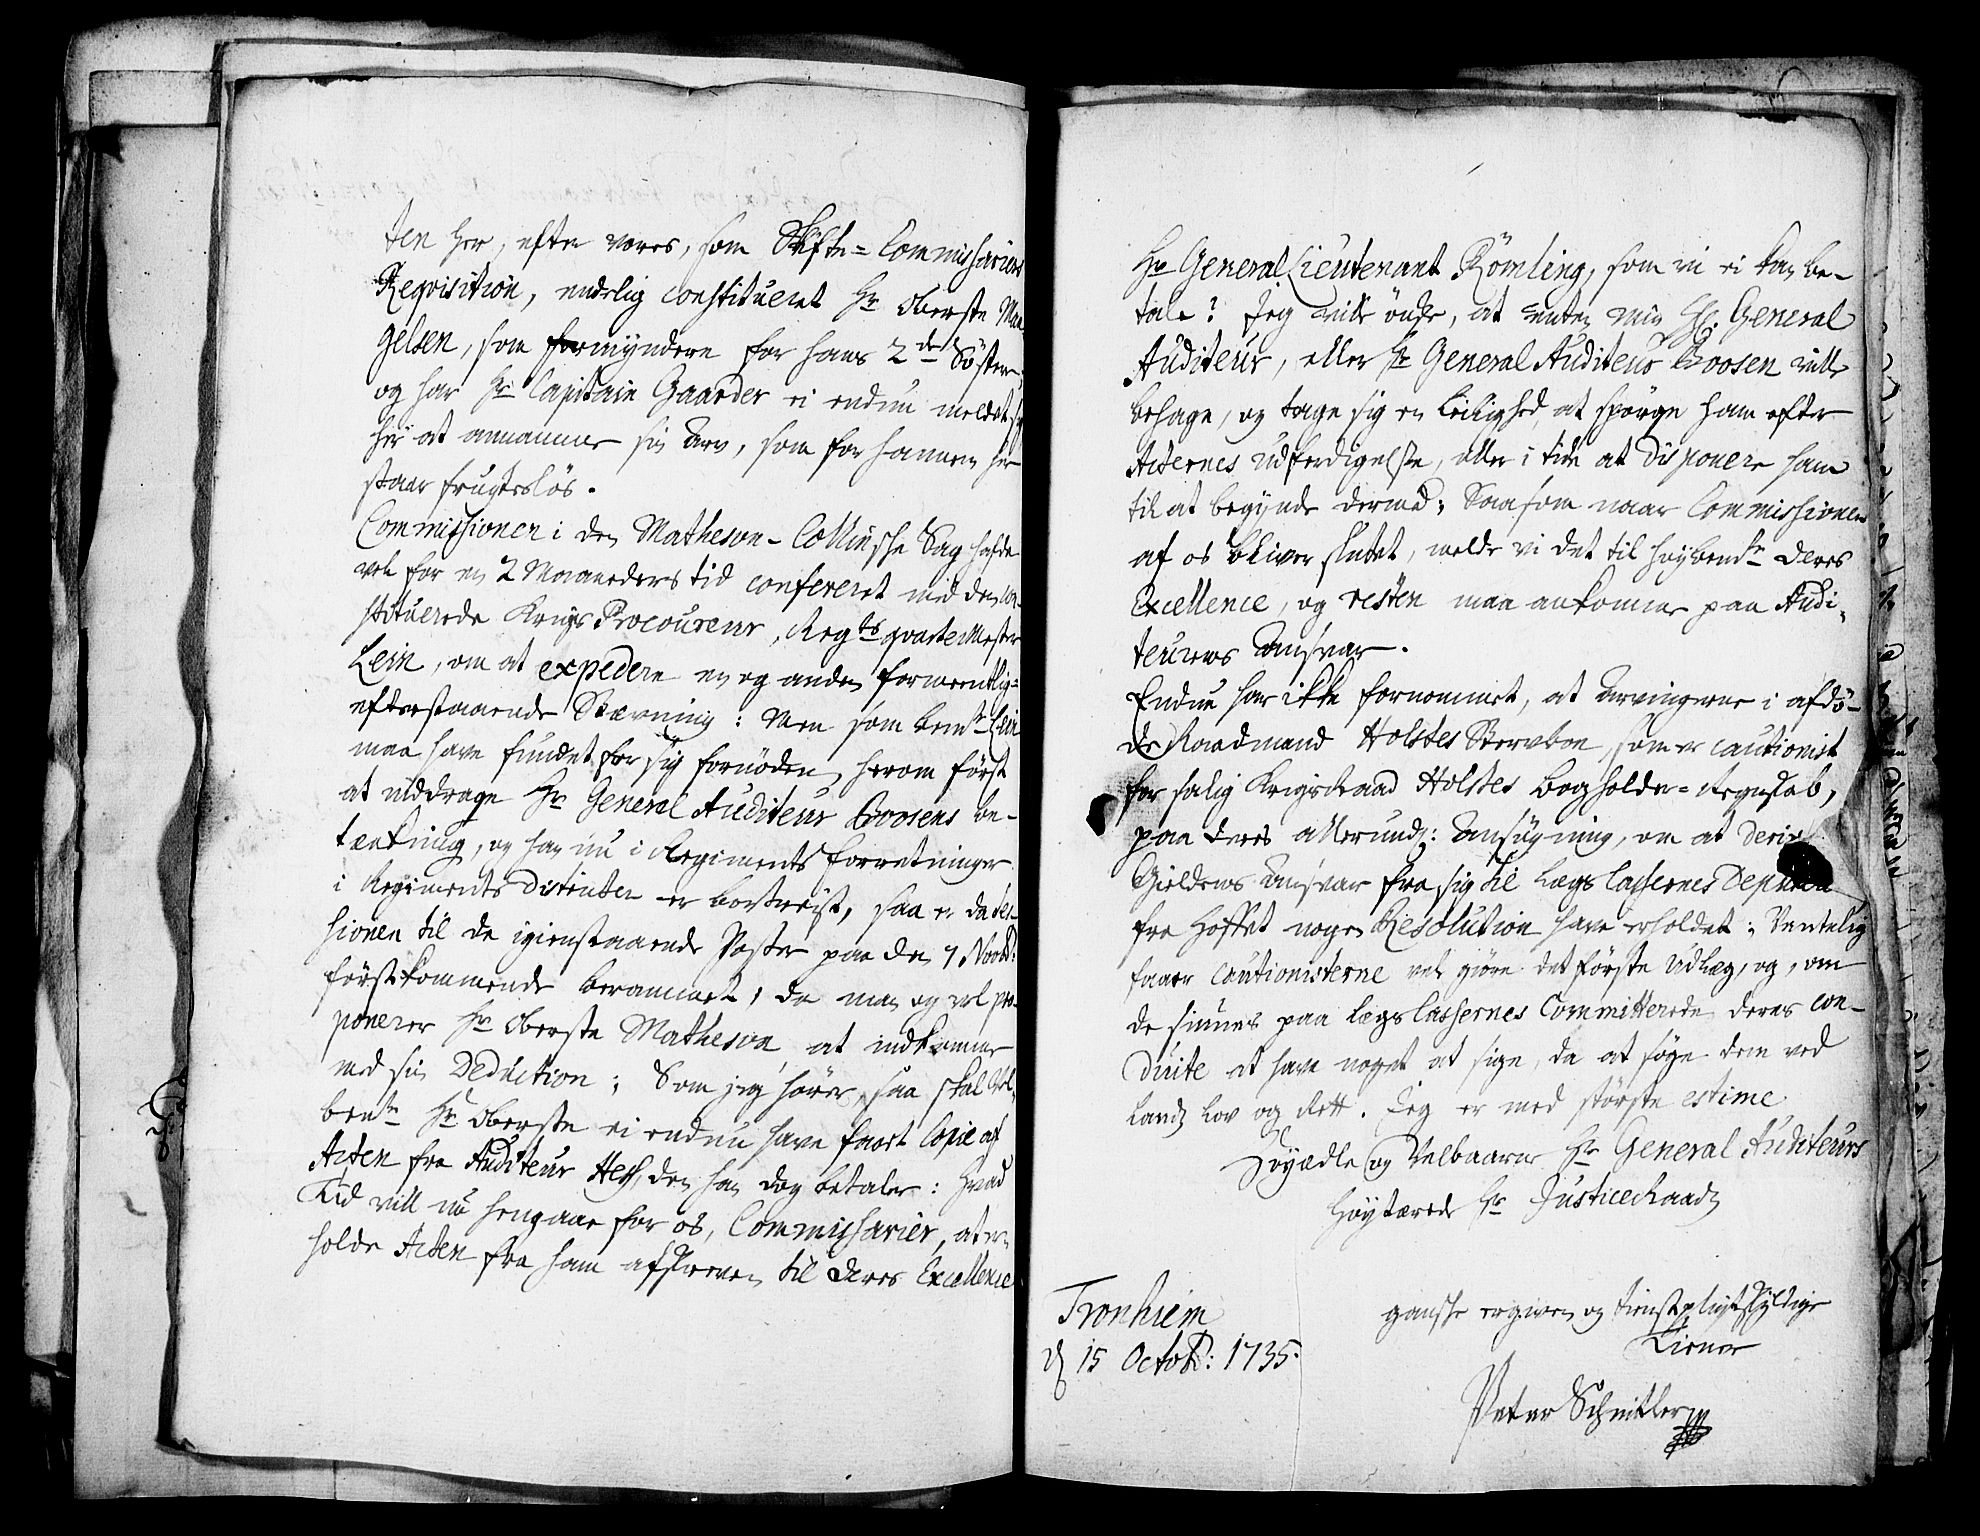 ten her, efter vores, som Skifte=Commissariers
Reqvisition, endelig constitueret Hr Oberste Man
gelsen, som formyndere for hans 2de Söstre;
og har Hr Capitain Gaarder ei endnu meldet sig
her at annamme sin Arv, som for hannem her
staar frugteslös.
Commissionen i den Matheson-Collinsche Sag hafde
vel for en 2 Maaneders tid confereret med den con-
stituerede Krigs Procoureur, Regts qvarteerMester
Lein, om at expedere en og anden formeentlig=
efterstaaende Stævning: Men som bemte Lein
maa have fundet for sig fornöden, herom först
at inddrage Hr General Auditeur Boosens be-
tænkning, og han nu i Regiments forretninger
i Regiments Districter er bortreist, saa er da Ses-
sionen til de igienstaaende Poster paa den 7 Novbr:
förstkommende berammet, da man og vel pro-
ponerer Hr Oberste Matheson at indkomme
med sin Deduction; Som jeg hörer, saa skal Vel-
bemte Hr Oberste ei endnu have faaet Copie af
Acten fra Auditeur Hess, den han dog betaler: Hvad
Tid vill nu hengaae for os, Commissarier, at er-
holde Acten fra ham afskreven til Deres Excellence
Hr General Lieutenant Römling, som vi ei kan be-
tale? Jeg ville önske, at enten min Hr: General
Auditeur, eller Hr General Auditeur Boosen ville
behage, og tage sig en Leilighed, at spörge ham efter
Acternes udferdigelse, eller i tide at disponere ham
til at begynde dermed; Saasom naar Commissionen
af os bliver sluttet, melde vi det til höybemte Deres
Excellence, og resten maa ankomme paa Audi-
teurens Ansvar.
Endnu har ikke fornommet, at Arvingerne i afdö-
de Raadmand Holstes Stervboe, som er cautionist
for salig Krigs Raad Holstes Bogholder=Regnskab,
paa deres allerund: Ansögning, om at
Gieldens Ansvar fra sig til Lægs Cassernes
fra Hoffet nogen Resolution have erholdet; Ventelig
faaer cautionisterne vel giöre det förste Udlæg, og, om
de sinnes paa Lægs Cassernes Committerede deres Con-
duite at have noget at sige, da at söge dem ved
Landz Lov og Rett. Jeg er med störste estime
Höyædle og Velbaarne Hr General Auditeurs
Höytærede Hr Justice Raadz
Tronhiem
d 15 Octobr: 1735.
ganske ergiven og tienstpligtskyldige
Tiener
Peter Schnitler